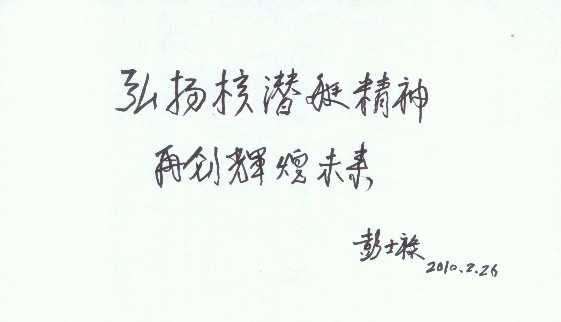 弘扬核潜艇精神
再创辉煌未来
彭士禄
2010.2.26